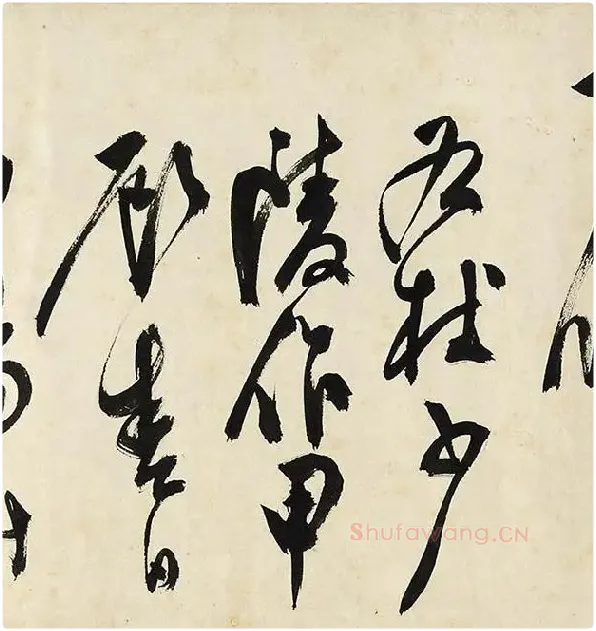 右杜少
陵作甲
辰春日
Shufawang.CN